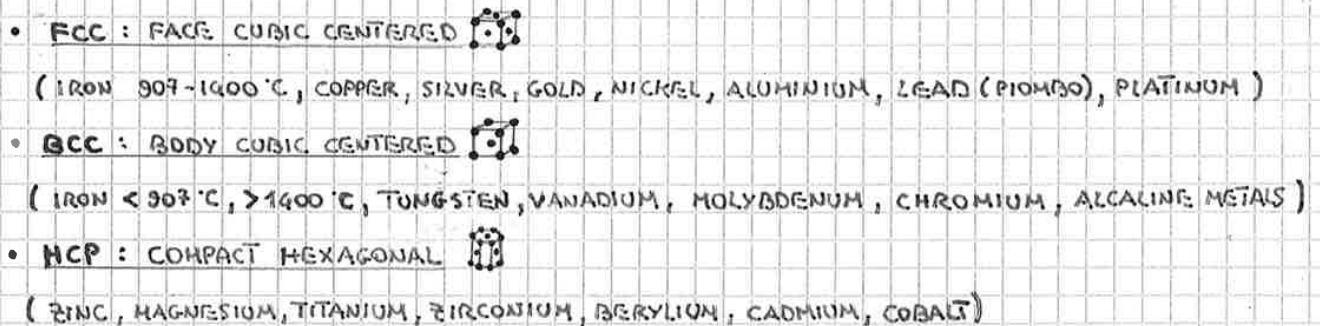 • FCC : FACE CUBIC CENTERED
( IRON 907-1400 °C, COPPER, SILVER, GOLD, NICKEL, ALUMINIUM, LEAD (PIOMBO), PLATINUM )
• BCC : BODY CUBIC CENTERED
( IRON < 907 °C, > 1400 °C, TUNGSTEN, VANADIUM, MOLYBDENUM, CHROMIUM, ALCALINE METALS )
• HCP : COMPACT HEXAGONAL
( ZINC, MAGNESIUM, TITANIUM, ZIRCONIUM, BERYLIUM, CADMIUM, COBALT )